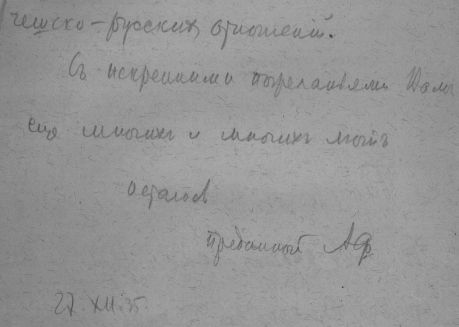 чешско-русских отношений.
Съ искренними пожеланьями Вамъ
еще многихъ и многихъ летъ
остаюсь
преданный АФ
27.XII.35